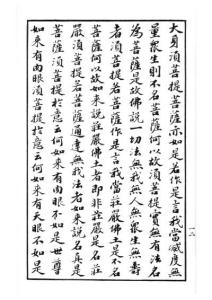 大身須菩提菩薩亦如是若作是言我當滅度無
量眾生則不名菩薩何以故須菩提實無有法名
為菩薩是故佛說一切法無我無人無眾生無壽
者須菩提若菩薩作是言我當莊嚴佛土是不名
菩薩何以故如來說莊嚴佛土者即非莊嚴是名莊
嚴須菩提若菩薩通達無我法者如來說名真是
菩薩須菩提於意云何如來有肉眼不如是世尊
如來有肉眼須菩提於意云何如來有天眼不如是